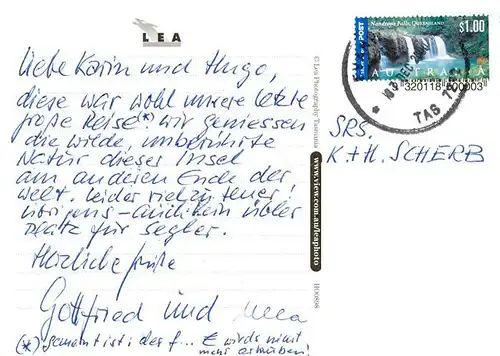 LEA
Liebe Karin und Hugo,
diese war wohl unsere letzte
große Reise (*) wir geniessen
die wilde, unberührte
Natur dieser Insel
am anderen Ende der
Welt. Leider viel zu teuer!
übrigens - auch kein übler
Platz für Segler.
Herzliche Grüße
Gottfried und
(*) gemeint ist: der f... € wird's nicht
mehr erlauben!
© Lea Photography Tasmania
www.view.com.au/leaphoto
Nandroya Falls, QUEENSLAND
$1.00
AUSTRALIA
320118 600903
TAS 7
SRS.
K+H. SCHERB